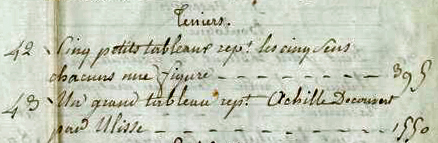 Teniers.
42 Cinq petits tableaux rept. les cinq sens
chacuns une figure - - - - - - - - - 395
43 Un grand tableau rept. Achille Decouvert
pard Ulisse - - - - - - - - - - - 1550